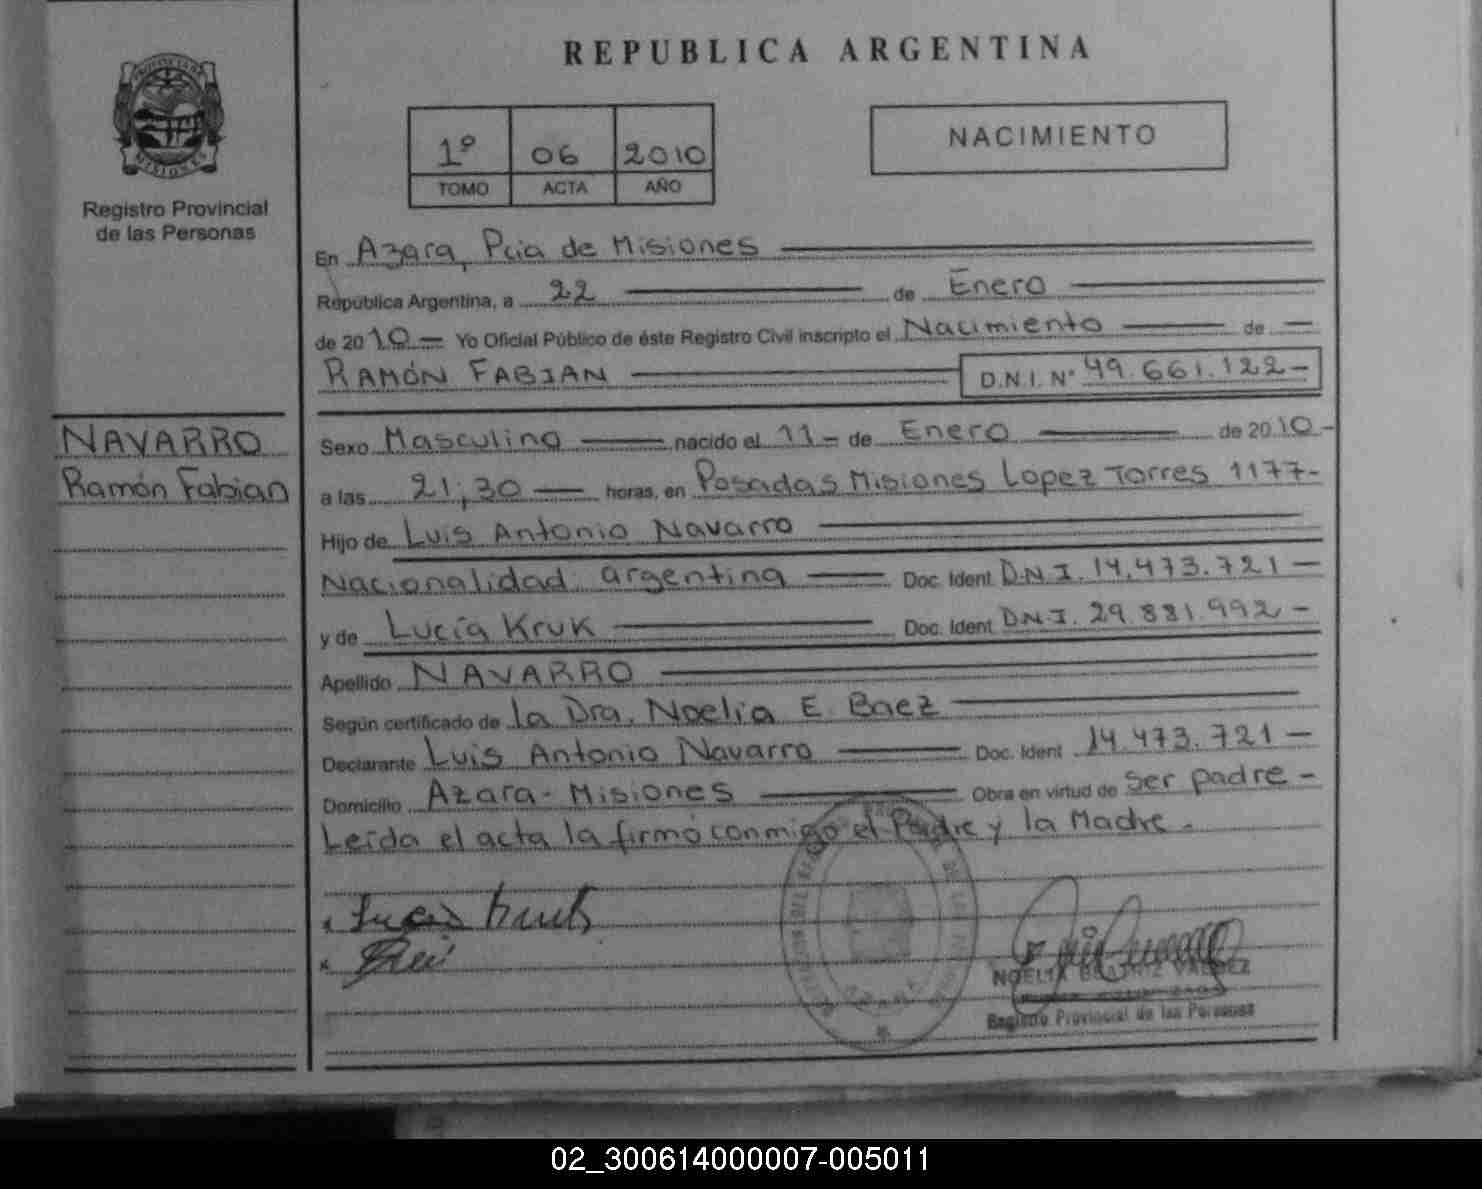 REPUBLICA ARGENTINA
PROVINCIA DE
MISIONES
Registro Provincial
de las Personas
1º 06 2010
TOMO ACTA AÑO
NACIMIENTO
En Azara, Pcia de Misiones
República Argentina, a 22 de Enero
de 2010 Yo Oficial Público de éste Registro Civil inscripto el Nacimiento de
RAMÓN FABIAN D.N.I. Nº 49.661.122-
NAVARRO
Ramón Fabian
Sexo Masculino nacido el 11- de Enero de 2010-
a las 21,30 horas, en Posadas Misiones Lopez Torres 1177-
Hijo de Luis Antonio Navarro
Nacionalidad argentina Doc. Ident. D.N.I. 14.473.721-
y de Lucía Kruk Doc. Ident. D.N.I. 29.881.992-
Apellido NAVARRO
Según certificado de la Dra. Noelia E. Baez
Declarante Luis Antonio Navarro Doc. Ident 14.473.721-
Domicilio Azara-Misiones Obra en virtud de Ser padre-
Leída el acta la firmó conmigo el Padre y la Madre.
NOELIA BEATRIZ VALDEZ
Registro Provincial de las Personas
02_300614000007-005011